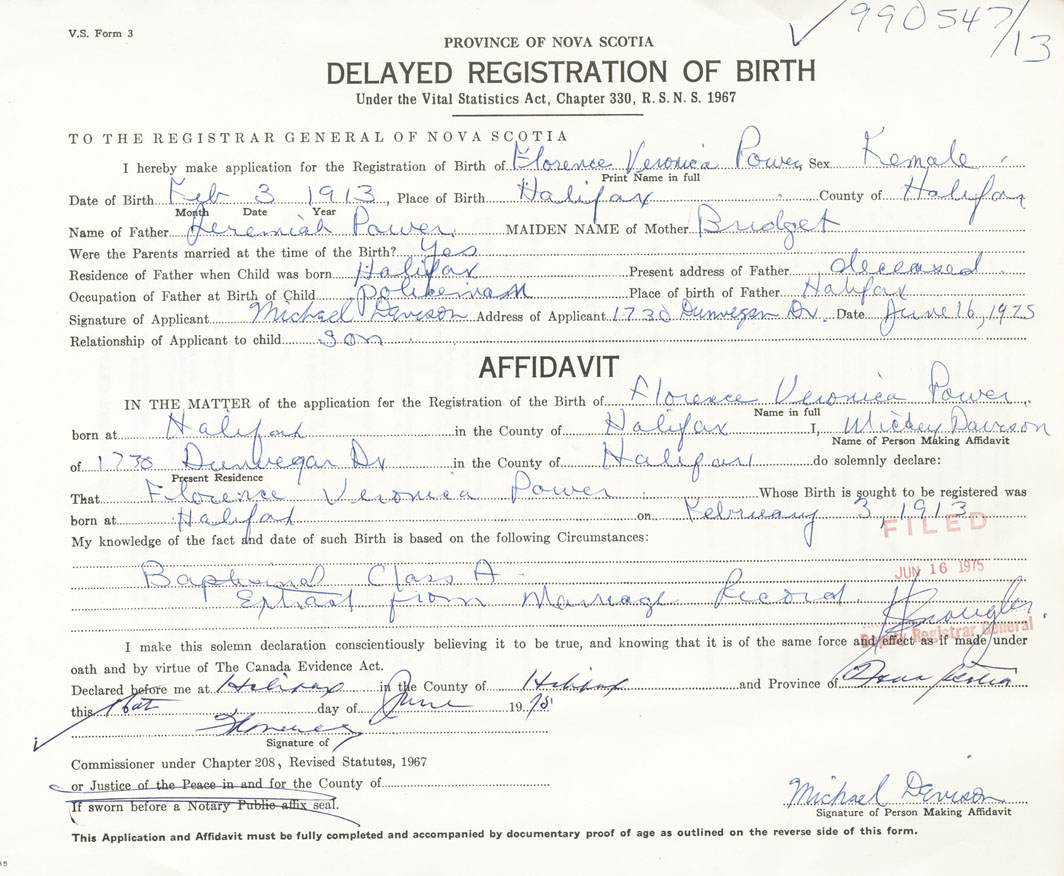 V.S. Form 3
990547/13
PROVINCE OF NOVA SCOTIA
DELAYED REGISTRATION OF BIRTH
Under the Vital Statistics Act, Chapter 330, R.S.N.S. 1967
TO THE REGISTRAR GENERAL OF NOVA SCOTIA
I hereby make application for the Registration of Birth of Florence Veronica Power, Sex Female
Print Name in full
Date of Birth Feb 3 1913, Place of Birth Halifax County of Halifax
Month Date Year
Name of Father Jeremiah Power MAIDEN NAME of Mother Bridget
Were the Parents married at the time of the Birth? Yes
Residence of Father when Child was born Halifax Present address of Father deceased
Occupation of Father at Birth of Child Policeman Place of birth of Father Halifax
Signature of Applicant Michael Davison Address of Applicant 1730 Dunvegan Dr. Date June 16, 1975
Relationship of Applicant to child son
AFFIDAVIT
IN THE MATTER of the application for the Registration of the Birth of Florence Veronica Power
Name in full
born at Halifax in the County of Halifax I, Mickey Davison
Name of Person Making Affidavit
of 1730 Dunvegan Dr in the County of Halifax do solemnly declare:
Present Residence
That Florence Veronica Power Whose Birth is sought to be registered was
born at Halifax on February 3, 1913
FILED
My knowledge of the fact and date of such Birth is based on the following Circumstances:
Baptismal Class A
JUN 16 1975
Extract from Marriage Record
Deputy Registrar General
I make this solemn declaration conscientiously believing it to be true, and knowing that it is of the same force and effect as if made under
oath and by virtue of The Canada Evidence Act.
Declared before me at Halifax in the County of Halifax and Province of Nova Scotia
this day of June 1975
Signature of
Commissioner under Chapter 208, Revised Statutes, 1967
or Justice of the Peace in and for the County of
If sworn before a Notary Public affix seal.
Michael Davison
Signature of Person Making Affidavit
This Application and Affidavit must be fully completed and accompanied by documentary proof of age as outlined on the reverse side of this form.